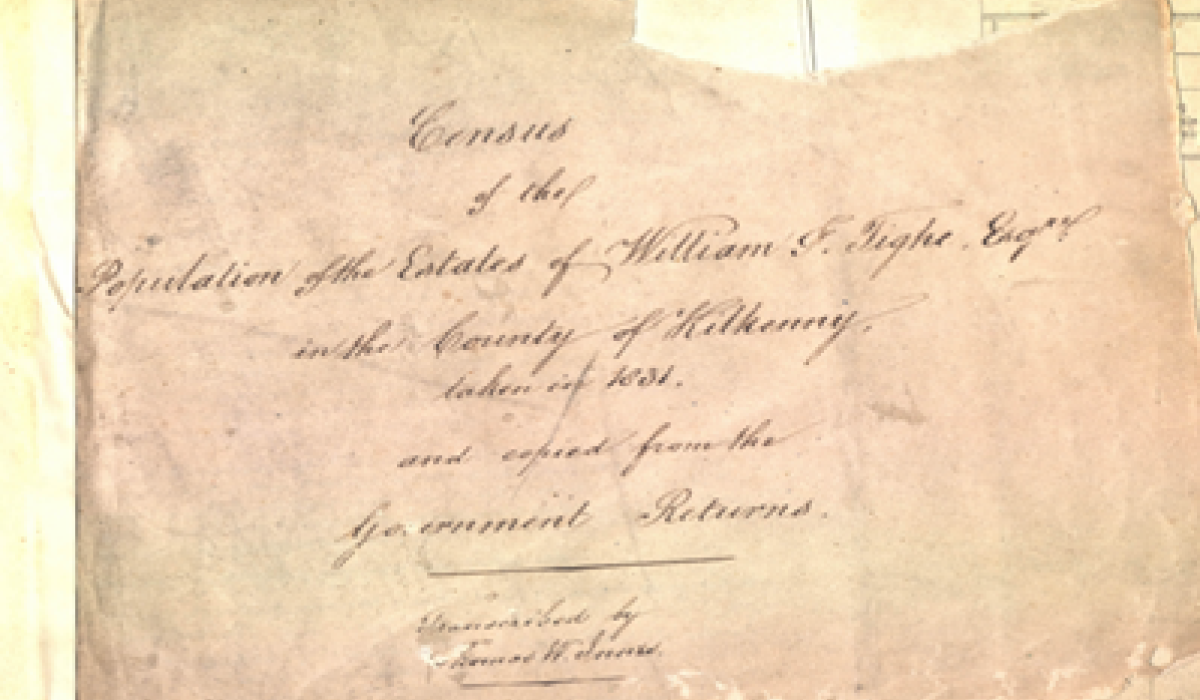 Census
of the
Population of the Estates of William F. Tighe. Esqre
in the County of Kilkenny.
taken in 1831.
and copied from the
Government Returns.
Transcribed by
Thomas W.